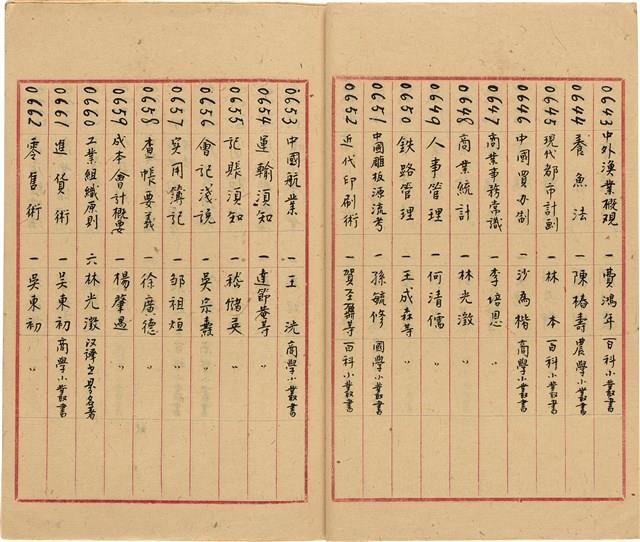 0643 中外漁業概观 一 費鴻年 百科小叢書
0644 養魚法 一 陳椿壽 農學小叢書
0645 現代都市計劃 一 林本 百科小叢書
0646 中國買办制 一 沙為楷 商學小叢書
0647 商業事務常識 一 李培恩 〃
0648 商業統計 一 林光澂 〃
0649 人事管理 一 何清儒 〃
0650 鉄路管理 一 王成森等 〃
0651 中國雕板源流考 一 孫毓修 國學小叢書
0652 近代印刷術 一 賀聖鼐等 百科小叢書
0653 中國航業 一 王洸 商學小叢書
0654 運輸須知 一 達節菴等 〃
0655 記賬須知 一 嵇儲英 〃
0656 會記淺説 一 吳宗燾 〃
0657 实用簿記 一 邹祖烜 〃
0658 查帳要義 一 徐廣德 〃
0659 成本會計概要 一 楊肇遇 〃
0660 工業組織原則 六 林光澂 汉譯世界名著
0661 進貨術 一 吳東初 商學小叢書
0662 零售術 一 吳東初 〃